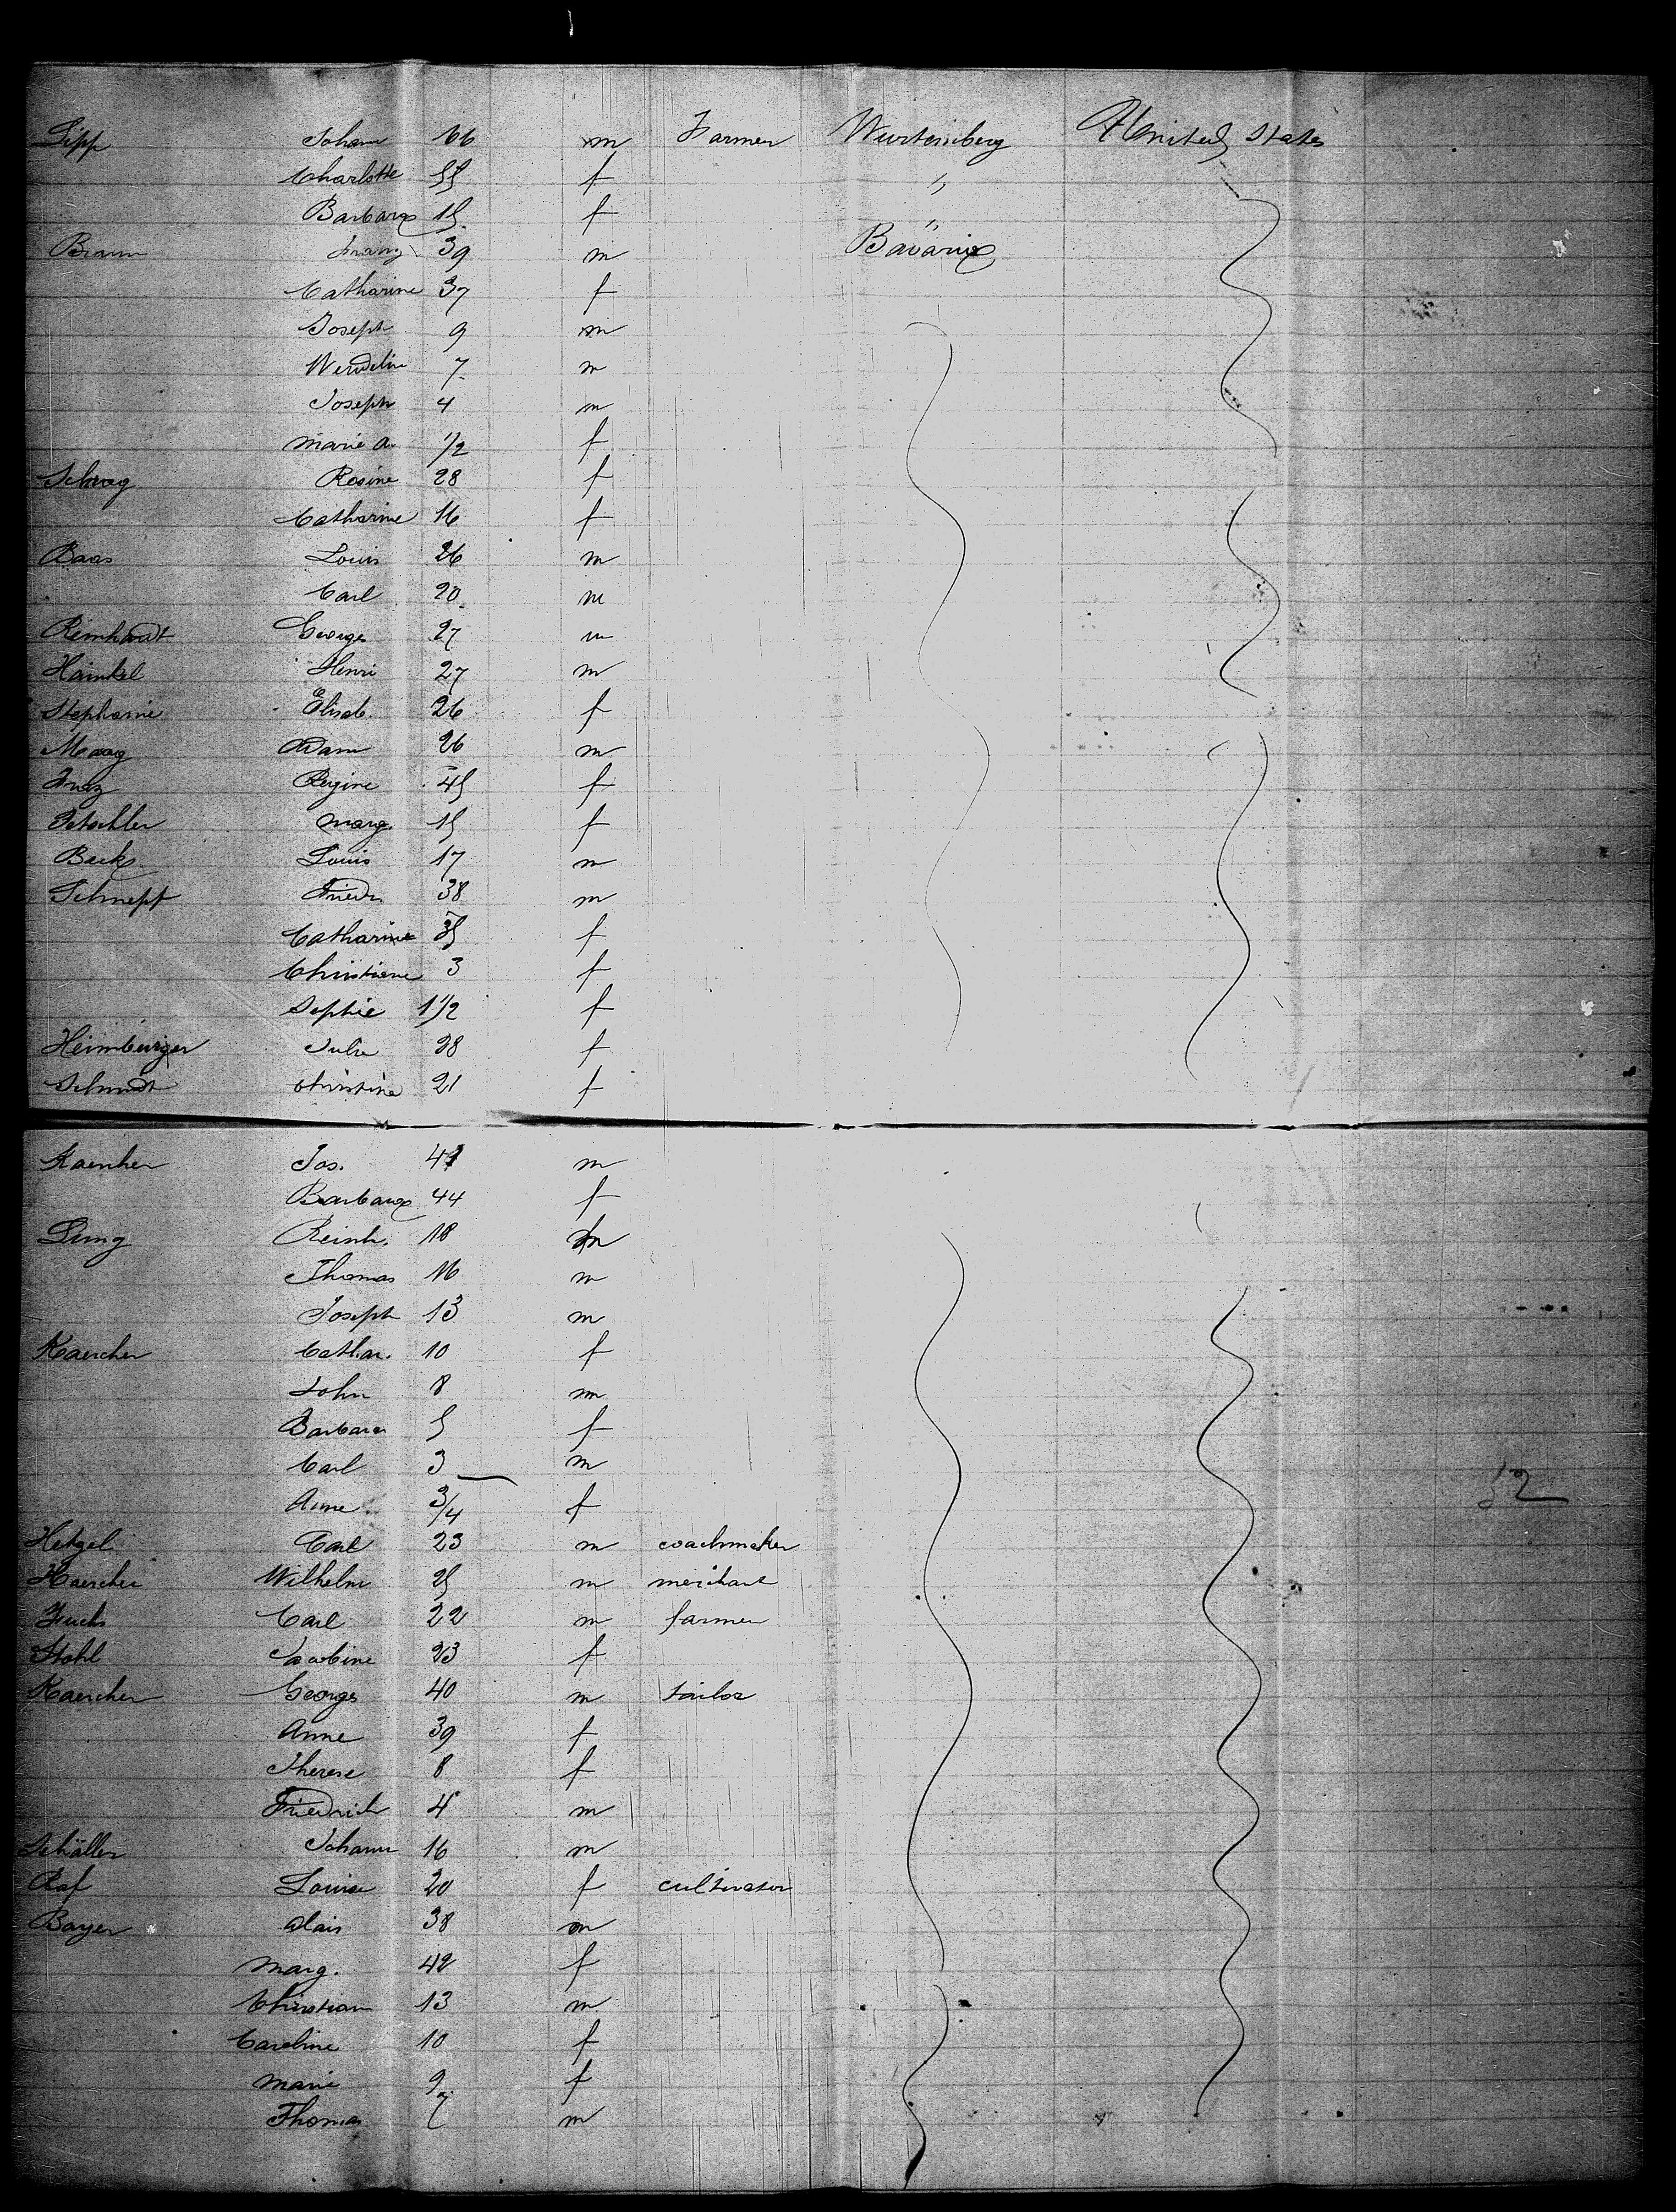 Sipp Johann 66 m Farmer Wurtemberg United States
Charlotte 55 f "
Barbara 15 f "
Braun Franz 39 m Bavaria
Catharine 37 f
Joseph 9 m
Wendelin 7 m
Joseph 4 m
Marie A. 1/2 f
Schrag Rosine 28 f
Catharine 16 f
Baas Louis 26 m
Carl 20 m
Reinhardt George 27 m
Hainkel Henri 27 m
Stephanie Elisab. 26 f
Maag Adam 26 m
Regine 45 f
Marg. 15 f
Back Louis 17 m
Schnepf Friedr. 38 m
Catharine 35 f
Christiane 3 f
Sophie 1 1/2 f
Heimburger Julie 28 f
Schmidt Christine 21 f
Kaercher Jos. 41 m
Barbara 44 f
Reinh. 18 m
Thomas 16 m
Joseph 13 m
Kaercher Cathar. 10 f
John 8 m
Barbara 5 f
Carl 3 m
Anne 3/4 f
52
Hetzel Carl 23 m coachmaker
Kaercher Wilhelm 25 m merchant
Fuchs Carl 22 m farmer
Stahl Jacobine 23 f
Kaercher Georges 40 m tailor
Anne 39 f
Therese 8 f
Friedrich 4 m
Schäller Johann 16 m
Raf Louise 20 f cultivator
Bayer Alois 38 m
Marg. 42 f
Christian 13 m
Caroline 10 f
Marie 9 f
Thomas 7 m